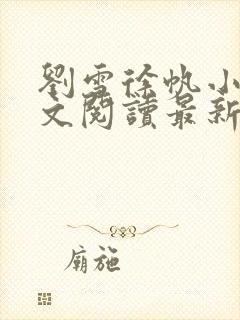 劉雪徐帆小
文閱讀最新
廟施